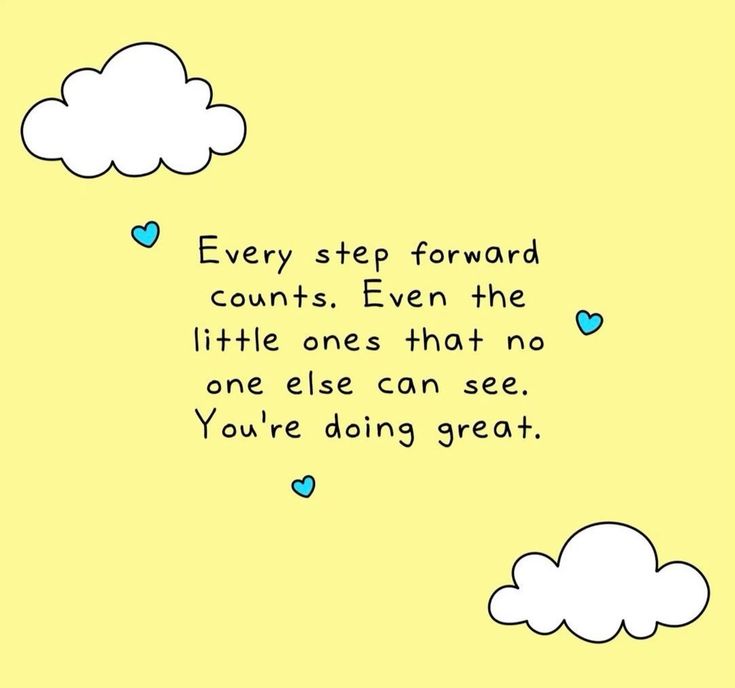 Every step forward
counts. Even the
little ones that no
one else can see.
You're doing great.